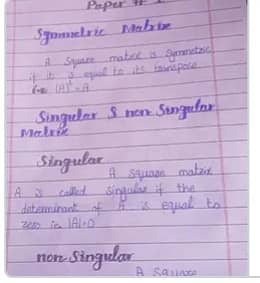 Paper # 1
Symmetric Matrix
A Square matrix is Symmetric
if it is equal to its transpose
i.e (A)ᵗ = A
Singular & non Singular
Matrix
Singular
A square matrix
A is called Singular if the
determinant of A is equal to
zero ie |A|=0
non Singular
A Square